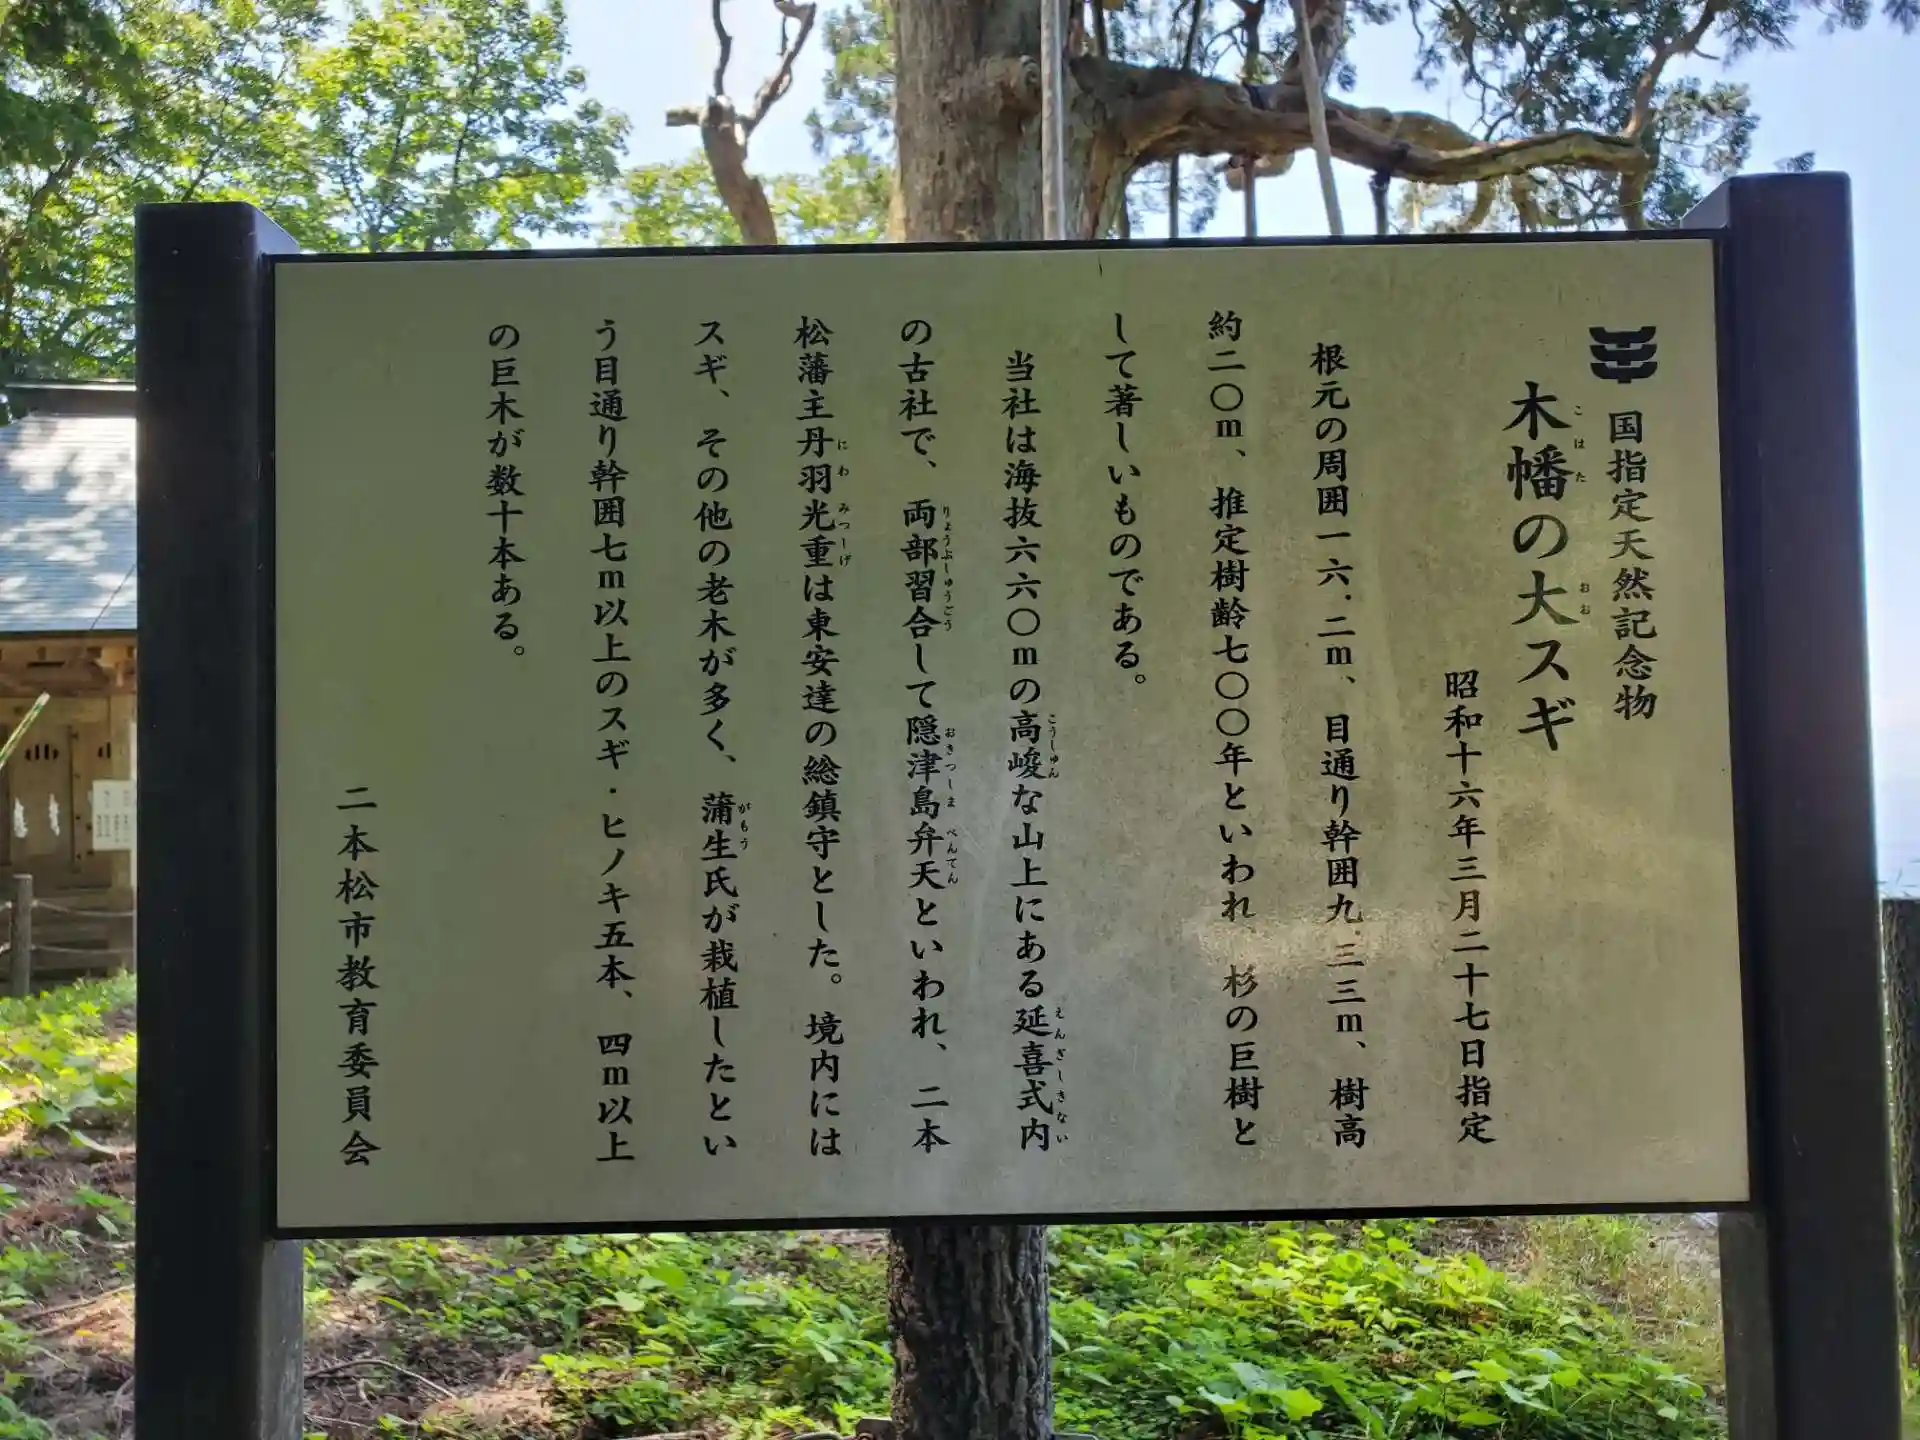 国指定天然記念物
木幡の大スギ
こはた
おお
昭和十六年三月二十七日指定
根元の周囲一六.二m、目通り幹囲九.三三m、樹高
約二〇m、推定樹齢七〇〇年といわれ 杉の巨樹と
して著しいものである。
当社は海抜六六〇mの高峻な山上にある延喜式内
こうしゅん
えんぎしきない
の古社で、両部習合して隠津島弁天といわれ、二本
りょうぶしゅうごう
おきつしま
べんてん
松藩主丹羽光重は東安達の総鎮守とした。境内には
にわ
みつしげ
スギ、その他の老木が多く、蒲生氏が栽植したとい
がもう
う目通り幹囲七m以上のスギ・ヒノキ五本、四m以上
の巨木が数十本ある。
二本松市教育委員会